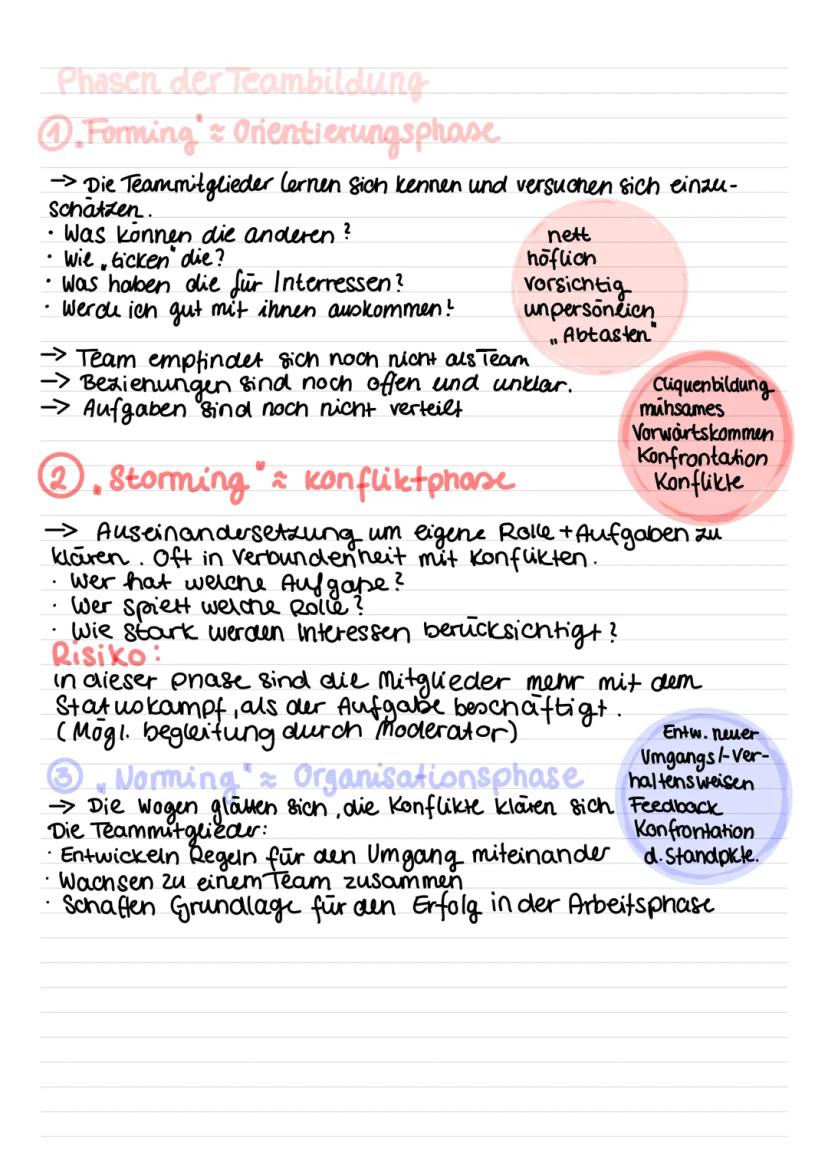 Phasen der Teambildung
① „Forming" ≈ Orientierungsphase
→ Die Teammitglieder lernen sich kennen und versuchen sich einzu-
schätzen.
· Was können die anderen?
· Wie „ticken" die?
· Was haben die für Interressen?
· Werde ich gut mit ihnen auskommen!
nett
höflich
vorsichtig
unpersönlich
„Abtasten"
→ Team empfindet sich noch nicht als Team
→ Beziehungen sind noch offen und unklar.
→ Aufgaben sind noch nicht verteilt
Cliquenbildung
mühsames
Vorwärtskommen
Konfrontation
Konflikte
② „Storming" ≈ Konfliktphase
→ Auseinandersetzung um eigene Rolle + Aufgaben zu
klären. Oft in Verbundenheit mit Konflikten.
· Wer hat welche Aufgabe?
· Wer spielt welche Rolle?
· Wie stark werden Interessen berücksichtigt?
Risiko:
in dieser phase sind die Mitglieder mehr mit dem
Statuskampf, als der Aufgabe beschäftigt.
(Mögl. begleitung durch Moderator)
③ „Norming" ≈ Organisationsphase
→ Die Wogen glätten sich, die Konflikte klären sich
Die Teammitglieder:
· Entwickeln Regeln für den Umgang miteinander
· Wachsen zu einem Team zusammen
· Schaffen Grundlage für den Erfolg in der Arbeitsphase
Entw. neuer
Umgangs/-Ver-
haltensweisen
Feedback
Konfrontation
d. Standpkte.